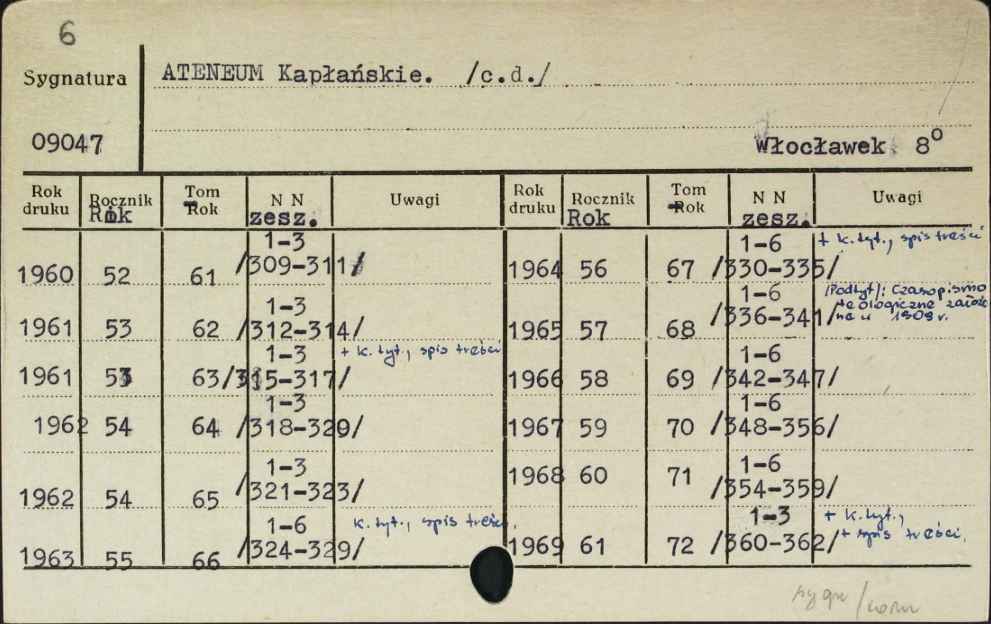 6
Sygnatura ATENEUM Kapłańskie. /c.d./
09047 Włocławek 8°
Rok druku Rocznik Rok Tom Rok N N zesz. Uwagi Rok druku Rocznik Rok Tom Rok N N zesz. Uwagi
1960 52 61 1-3 /309-311/
1961 53 62 1-3 /312-314/
1961 53 63 1-3 /315-317/ + k. tyt., spis treści
1962 54 64 1-3 /318-320/
1962 54 65 1-3 /321-323/
1963 55 66 1-6 /324-329/ k. tyt., spis treści,
1964 56 67 1-6 /330-335/ + k. tyt., spis treści
1965 57 68 1-6 /336-341/ /Podtyt/: Czasopismo teologiczne założone w 1909 r.
1966 58 69 1-6 /342-347/
1967 59 70 1-6 /348-356/
1968 60 71 1-6 /354-359/
1969 61 72 1-3 /360-362/ + k. tyt., + spis treści,